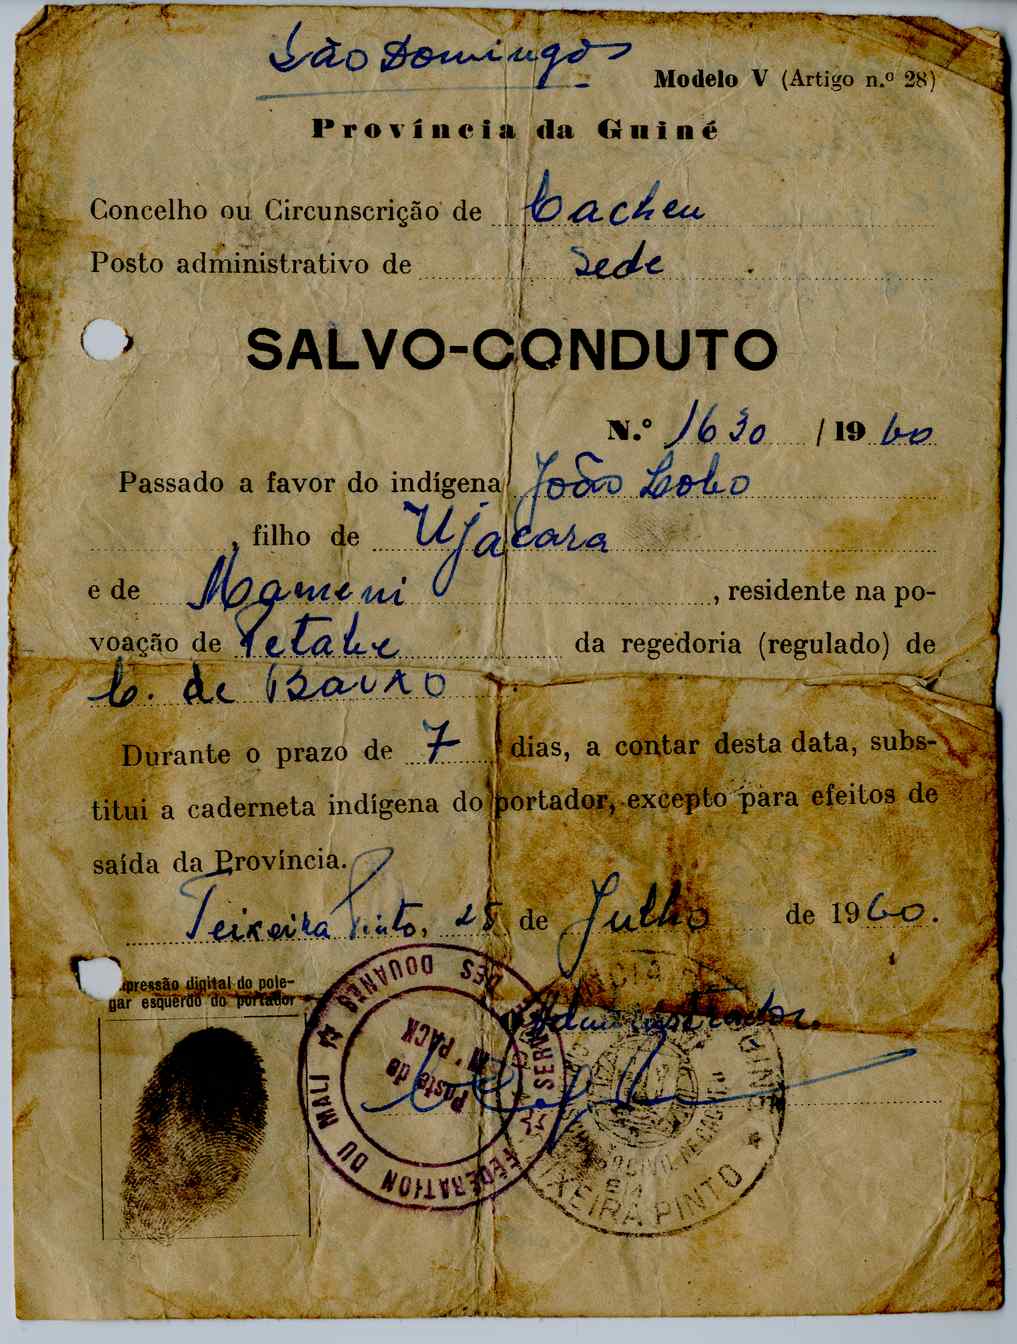 São Domingos
Modelo V (Artigo n.º 28)
Província da Guiné
Concelho ou Circunscrição de Cacheu
Posto administrativo de Sede
SALVO-CONDUTO
N.º 1630 / 1960
Passado a favor do indígena João Lobo
, filho de Ujacara
e de Mameni , residente na po-
voação de Petabe da regedoria (regulado) de
C. de Baixo
Durante o prazo de 7 dias, a contar desta data, subs-
titui a caderneta indígena do portador, excepto para efeitos de
saída da Província.
Teixeira Pinto, 25 de Julho de 1960.
pressão digital do pole-
gar esquerdo do portador
Administrador.
FEDERATION DU MALI ☆ SERVICE DES DOUANES ☆
Poste de
M'PACK
PROVINCIA DA GUINÉ
CIVIL DE CACHEU
TEIXEIRA PINTO *